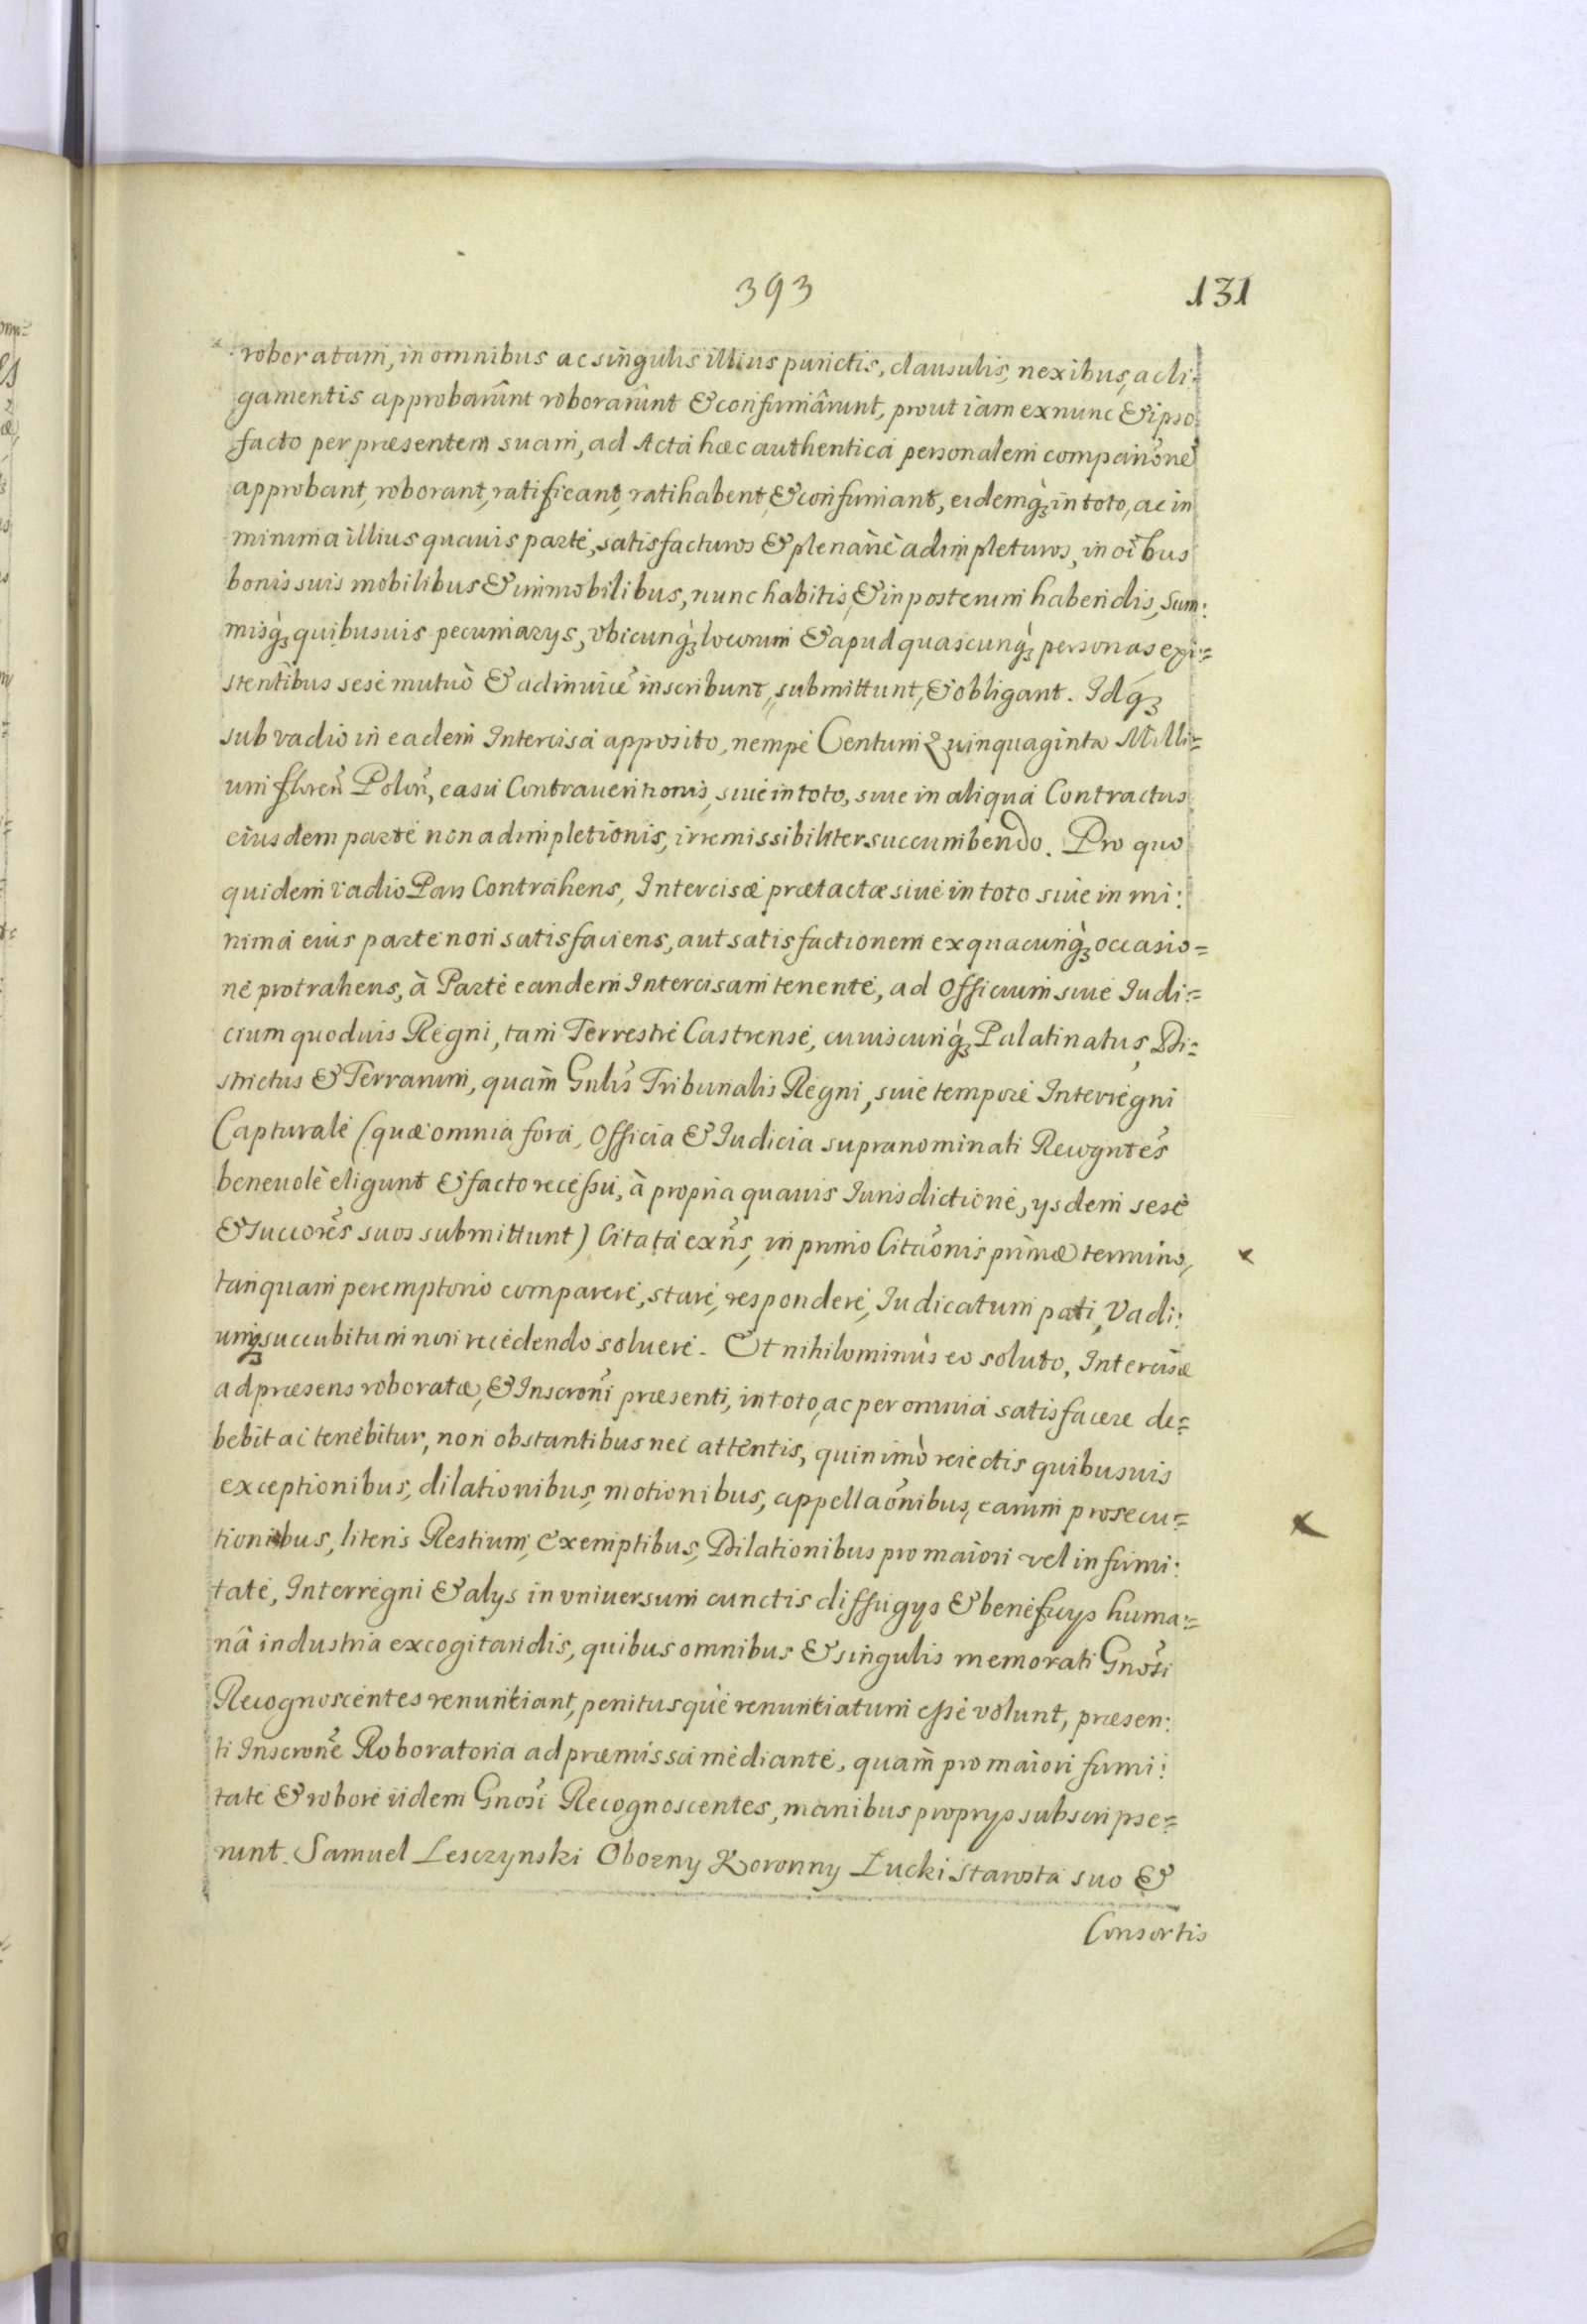 393
131
roboratam, in omnibus ac singulis illius punctis, clausulis, nexibus, ac li:
gamentis approbarûnt roborarûnt & confirmârunt, prout iam ex nunc & ipso
facto per præsentem suam, ad Acta hæc authentica personalem comparionẽ
approbant, roborant, ratificant, ratihabent, & confirmant, eidemq́ꝫ in toto, ac in
minima illius quauis parte, satisfacturos & plenariè adimpleturos, in oĩbus
bonis suis mobilibus & immobilibus, nunc habitis, & in posterum habendis, Sum:
misq́ꝫ quibusuis pecuniarys, vbicunq́ꝫ locorum & apud quascunq́ꝫ personas exi:=
stentibus sese mutuò & adinuicẽ inscribunt, submittunt, & obligant. Idq́ꝫ
sub vadio in eadem Intercisa apposito, nempe Centum Quinquaginta Milli=
um floreñ Poloñ, casu Contrauentionis, siue in toto, siue in aliqua Contractus
eiusdem parte non adimpletionis, irremissibiliter succumbendo. Pro quo
quidem vadio Pars Contrahens, Intercisæ prætactæ siue in toto siue in mi:
nima eius parte non satisfaciens, aut satisfactionem ex quacunq́ꝫ occasio=
ne protrahens, à Parte eandem Intercisam tenente, ad Officium siue Iudi:=
cium quoduis Regni, tam Terrestre Castrense, cuiuscunq́ꝫ Palatinatus, Di:=
strictus & Terrarum, quam̃ Gnlis̃ Tribunalis Regni, siue tempore Interregni
Capturale (quæ omnia fora, Officia & Iudicia supranominati Recogntẽs
beneuolè eligunt & facto recessu, à propria quauis Iurisdictione, ysdem sese
& succorẽs suos submittunt) Citata exñs, in primo Citãonis primæ termino,
tanquam peremptorio comparere, stare, respondere, Iudicatum pati, Vadi:
umqꝫ succubitum non recedendo soluere. Et nihilominùs eo soluto, Intercisæ
ad præsens roboratæ, & Inscroni̴ præsenti, in toto, ac per omnia satisfacere de=
bebit ac tenebitur, non obstantibus nec attentis, quinimò reiectis quibusuis
exceptionibus, dilationibus, motionibus, appellaõnibus, earum prosecu:=
tionibus, literis Restium, exemptibus, Dilationibus pro maiori vel infirmi:
tate, Interregni & alys in vniuersum cunctis diffugys & beneficys huma:=
nâ industria excogitandis, quibus omnibus & singulis memorati Gnosĩ
Recognoscentes renuntiant, penitusquè renuntiatum esse volunt, præsen:
ti Inscronẽ Roboratoria ad præmissa mediante, quam̃ pro maiori firmi:
tate & robore iidem Gnosĩ Recognoscentes, manibus proprys subscripse:=
runt. Samuel Lesczynski Obozny Koronny Łucki starosta suo &
Consortis